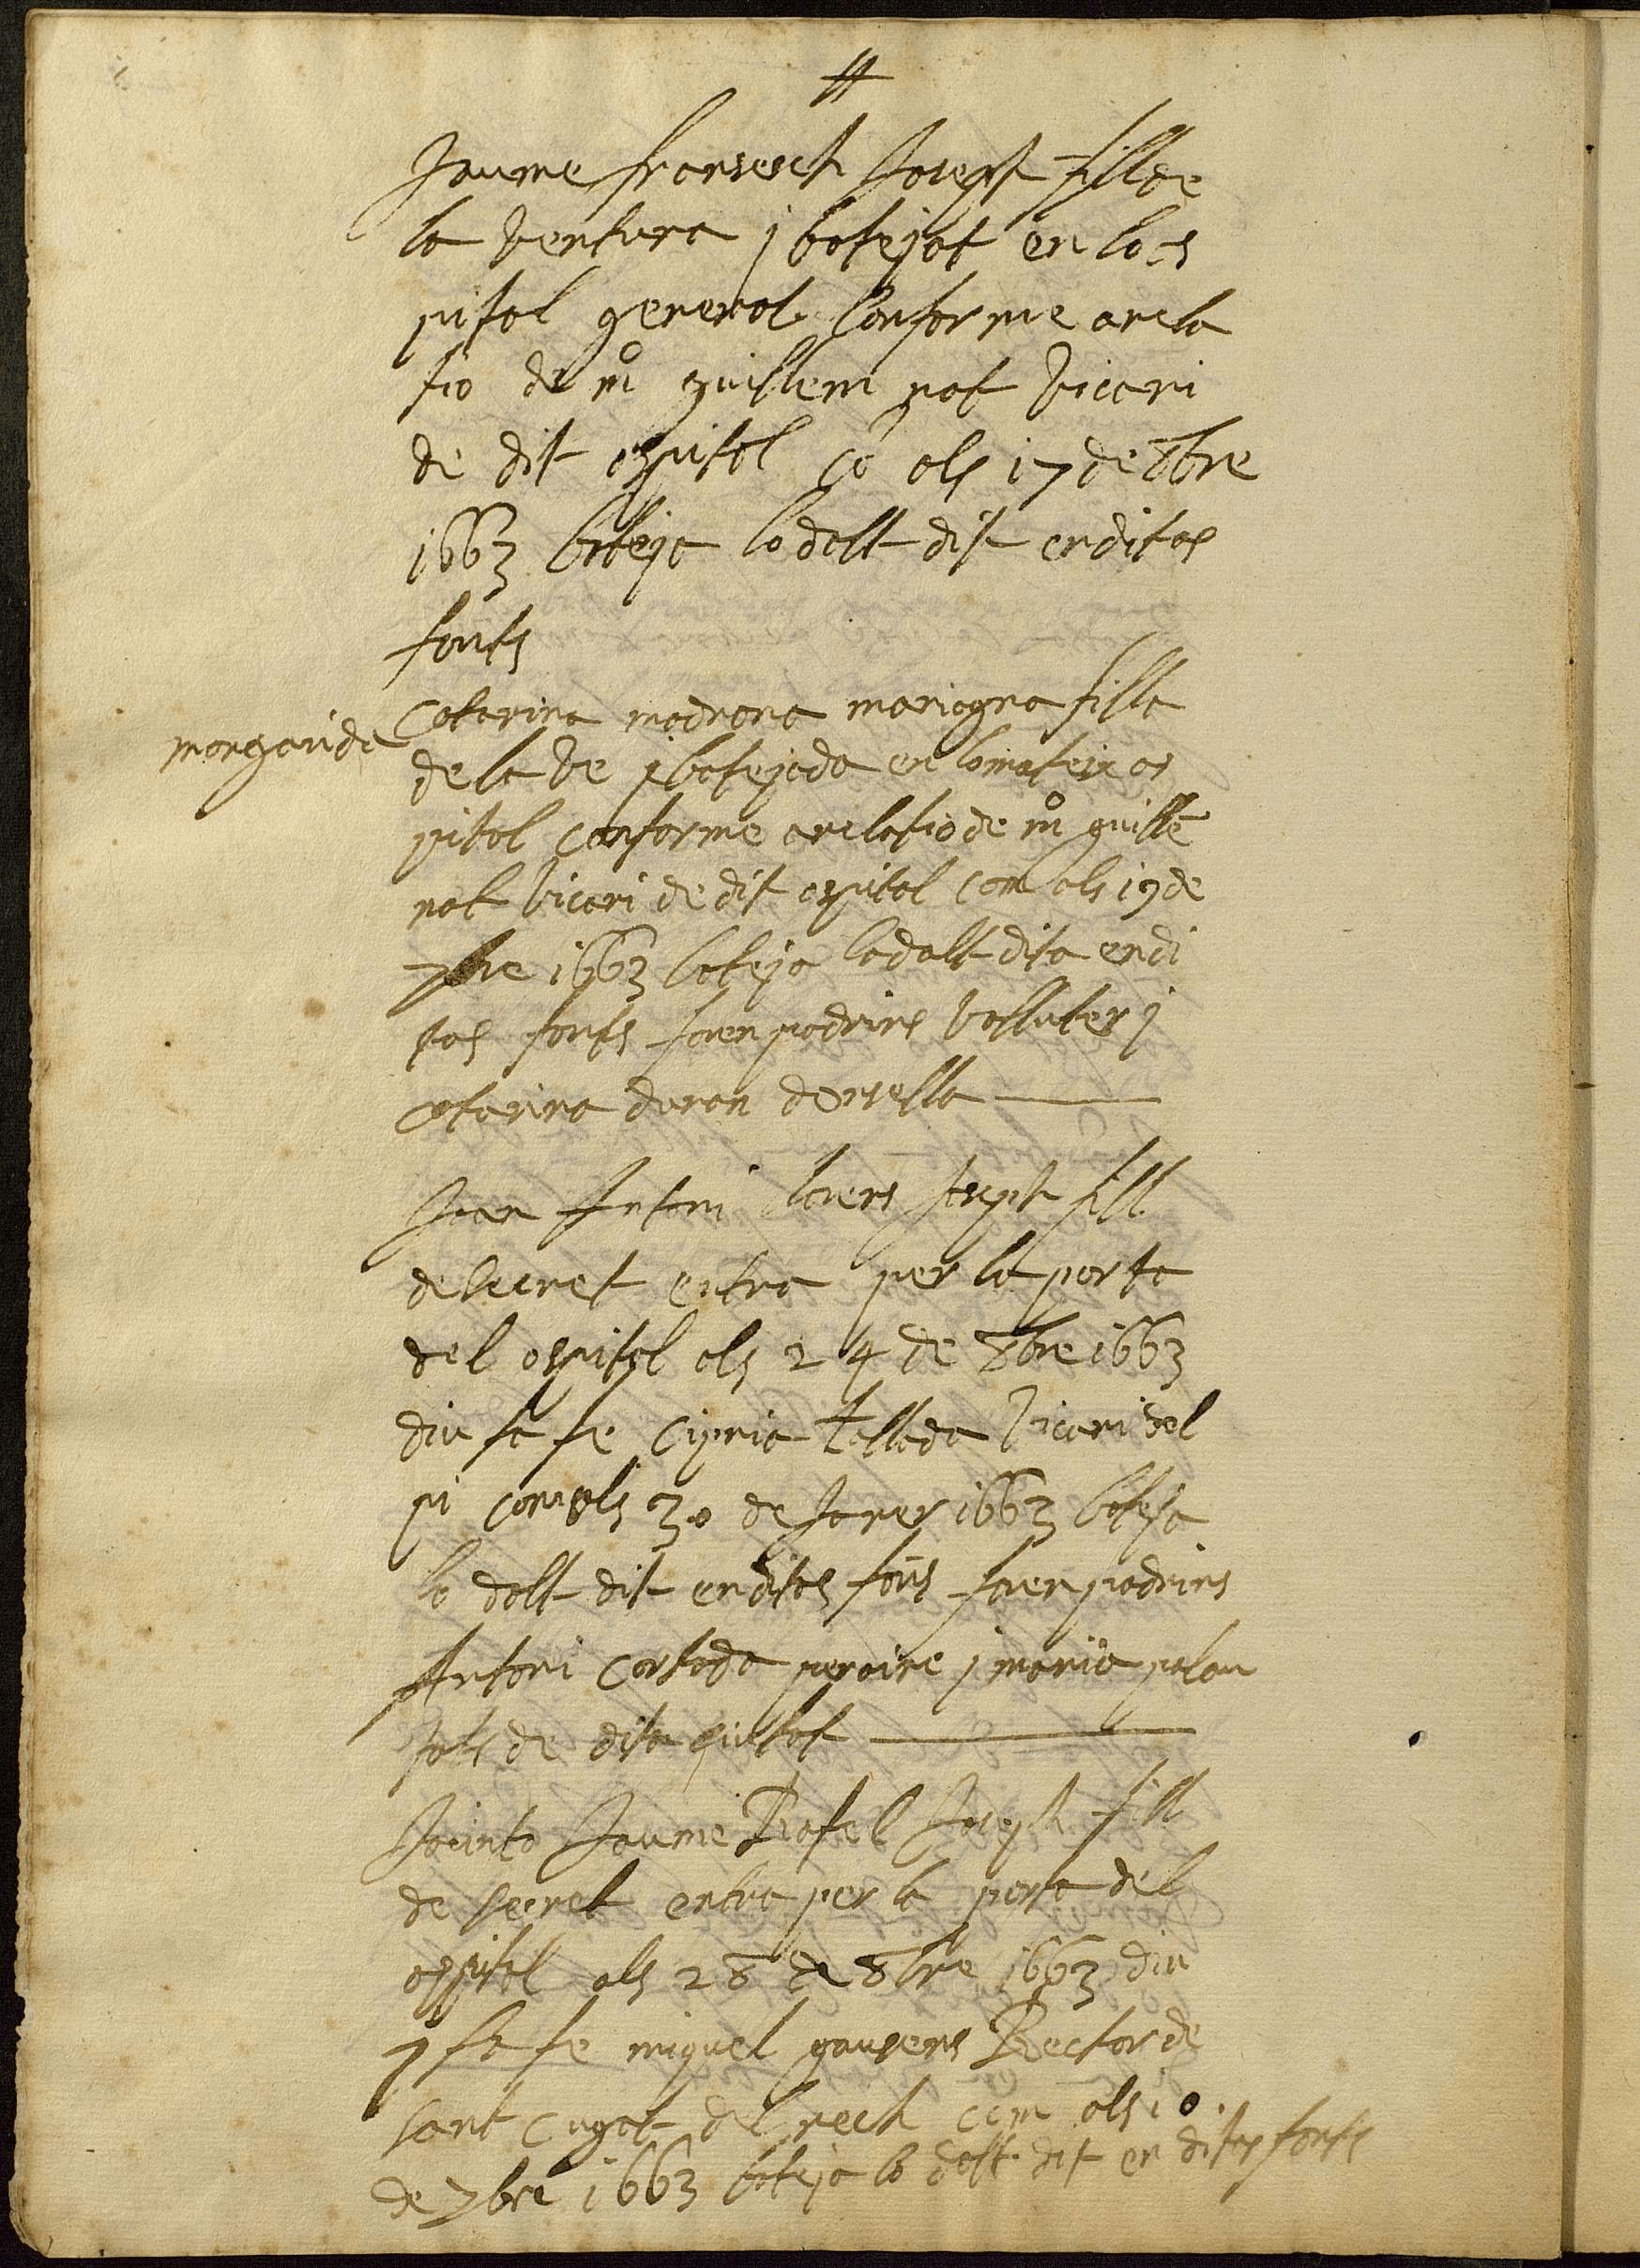 Jaume fransesch Joseph fill de
la ventura j batejat en los
pital general conforme a rela
tio de mº guillem nat vicari
de dit ospital co als 17 de 8bre
1663 bateja lo dalt dit en ditas
fonts
margarida
Catarina madrona mariagna filla
de la ve j batejada en lo mateix os
pital conforme a relatio de mº guillē
nat vicari de dit ospital com als 19 de
7bre 1663 bateja la dalt dita en di
tas fonts foren padrins valluter j
catarina duran donsella
Joan Antoni Joseph fill
de secret entra per la porta
del ospital als 24 de 8bre 1663
diu fa fe Cipria tellada vicari del
pi com als 30 de Janer 1663 bateja
lo dalt dit en ditas fōts foren padrins
Antoni cortada peraire j maria palau
tots de dita ciutat
Jacinto Jaume Rafel Joseph fill
de secret entra per la porta del
ospital als 28 de 8bre 1663 diu
j fa fe miquel gausens Rector de
sant Cugat del rech com als 10
de 7bre 1663 bateja lo dalt dit en ditas fonts